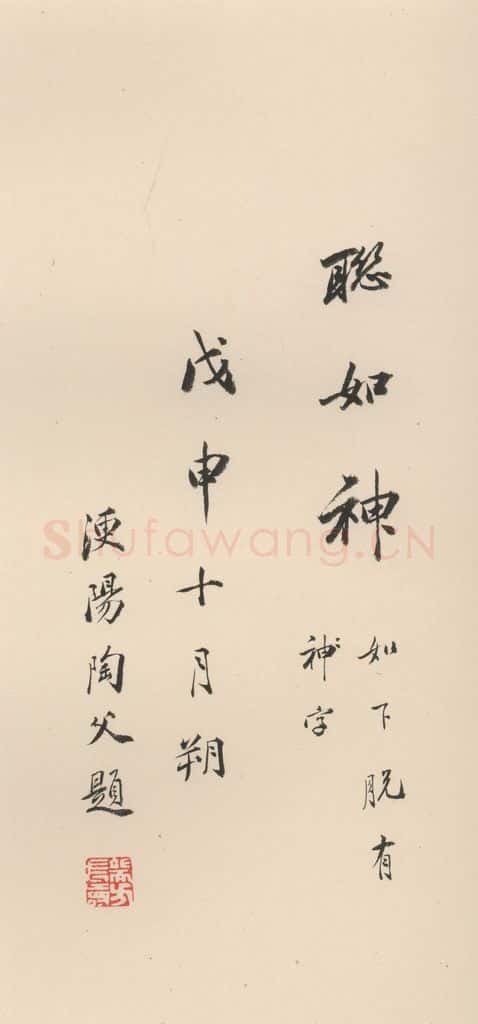 聰如神
如下脫有
神字
戊申十月朔
浭陽陶父題
Shufawang.CN